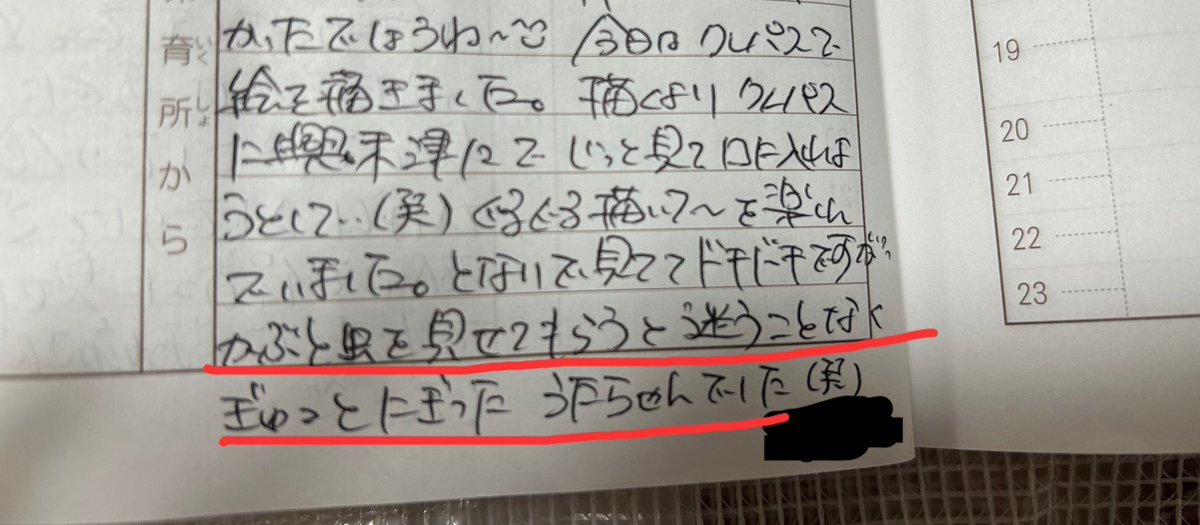 育いく所しょから
かったでしょうね〜 今日は クレパスで
絵を描きました。描くより クレパス
に興味津々で じっと見て口に入れよ
うとして..(笑) ぐるぐる描いて〜を楽しん
でいました。となりで見ててドキドキですが、
かぶと虫を見せてもらうと迷うことなく
ぎゅっとにぎった うたらせんでした(笑)
19
20
21
22
23